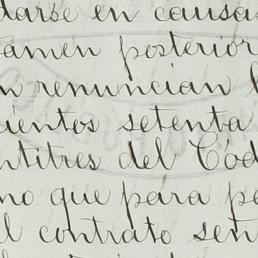 darse en causas
tamen posterior
n renuncian l
cientos setenta
ntitres del Cód
no que para pa
l contrato sen